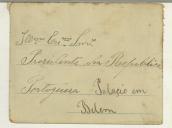 Illmo Exmo Snr
Presidente da Republica
Portugueza Palacio em
Belem